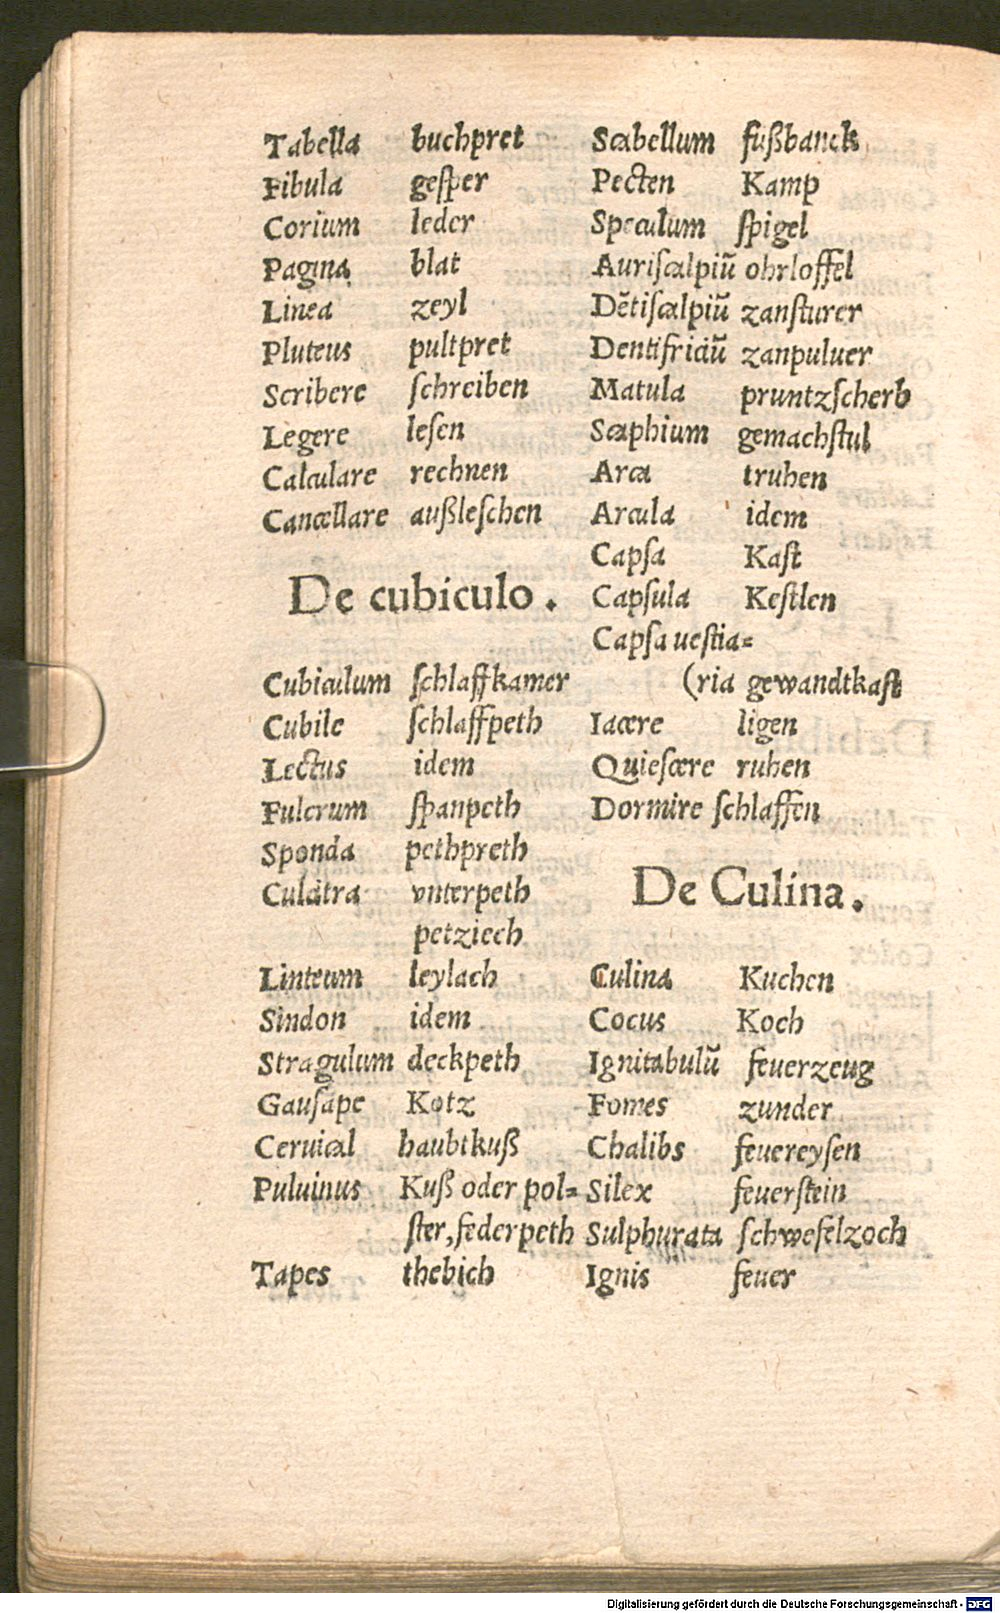 Tabella buchpret
Fibula geſper
Corium leder
Pagina blat
Linea zeyl
Pluteus pultpret
Scribere ſchreiben
Legere leſen
Calculare rechnen
Cancellare außleſchen
De cubiculo.
Cubiculum ſchlaffkamer
Cubile ſchlaffpeth
Lectus idem
Fulcrum ſpanpeth
Sponda pethpreth
Culcitra vnterpeth
petziech
Linteum leylach
Sindon idem
Stragulum deckpeth
Gauſape Kotz
Ceruical haubtkuß
Puluinus Kuß oder pol=
ſter, federpeth
Tapes thebich
Scabellum fußbanck
Pecten Kamp
Speculum ſpigel
Auriſcalpiũ ohrloffel
Dẽtiſcalpiũ zanſturer
Dentifriciũ zanpuluer
Matula pruntzſcherb
Scaphium gemachſtul
Arca truhen
Arcula idem
Capſa Kaſt
Capſula Keſtlen
Capſa ueſtia=
(ria gewandtkaſt
Iacere ligen
Quieſcere ruhen
Dormire ſchlaffen
De Culina.
Culina Kuchen
Cocus Koch
Ignitabulũ feuerzeug
Fomes zunder
Chalibs feuereyſen
Silex feuerſtein
Sulphurata ſchwefelzoch
Ignis feuer
Digitalisierung gefördert durch die Deutsche Forschungsgemeinschaft - DFG